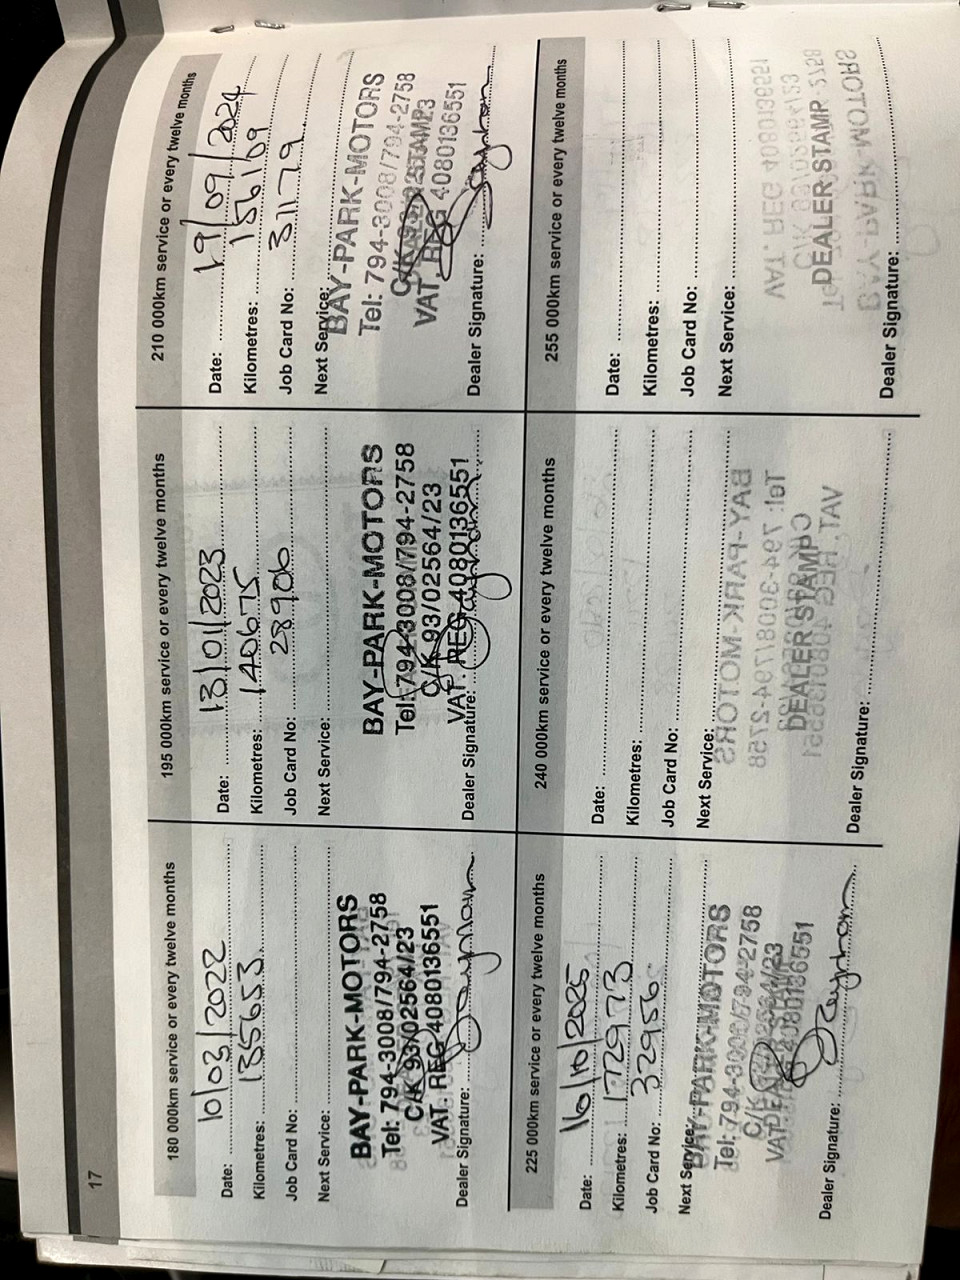 17
180 000km service or every twelve months
Date: 10/03/2022
Kilometres: 135653
Job Card No:
Next Service:
BAY-PARK-MOTORS
Tel: 794-3008/794-2758
C/K 93/02564/23
VAT. REG 4080136551
Dealer Signature:
195 000km service or every twelve months
Date: 13/01/2023
Kilometres: 140675
Job Card No: 28906
Next Service:
BAY-PARK-MOTORS
Tel: 794-3008/794-2758
C/K 93/02564/23
VAT. REG 4080136551
Dealer Signature:
210 000km service or every twelve months
Date: 19/09/2024
Kilometres: 156109
Job Card No: 31179
Next Service:
BAY-PARK-MOTORS
Tel: 794-3008/794-2758
VAT. REG 4080136551
Dealer Signature:
225 000km service or every twelve months
Date: 16/10/2025
Kilometres: 172973
Job Card No: 32956
Next Service:
BAY-PARK-MOTORS
Tel: 794-3008/794-2758
C/K 93/02564/23
4080136551
Dealer Signature:
240 000km service or every twelve months
Date:
Kilometres:
Job Card No:
Next Service:
DEALER STAMP
Dealer Signature:
255 000km service or every twelve months
Date:
Kilometres:
Job Card No:
Next Service:
DEALER STAMP
Dealer Signature: